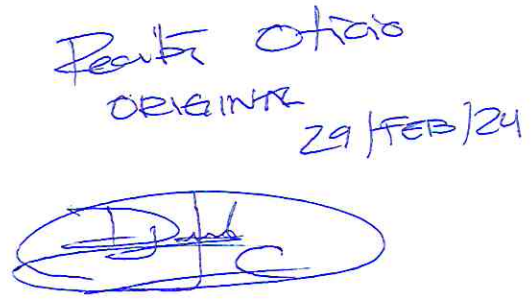 Recibí Oficio
ORIGINAL
29/FEB/24